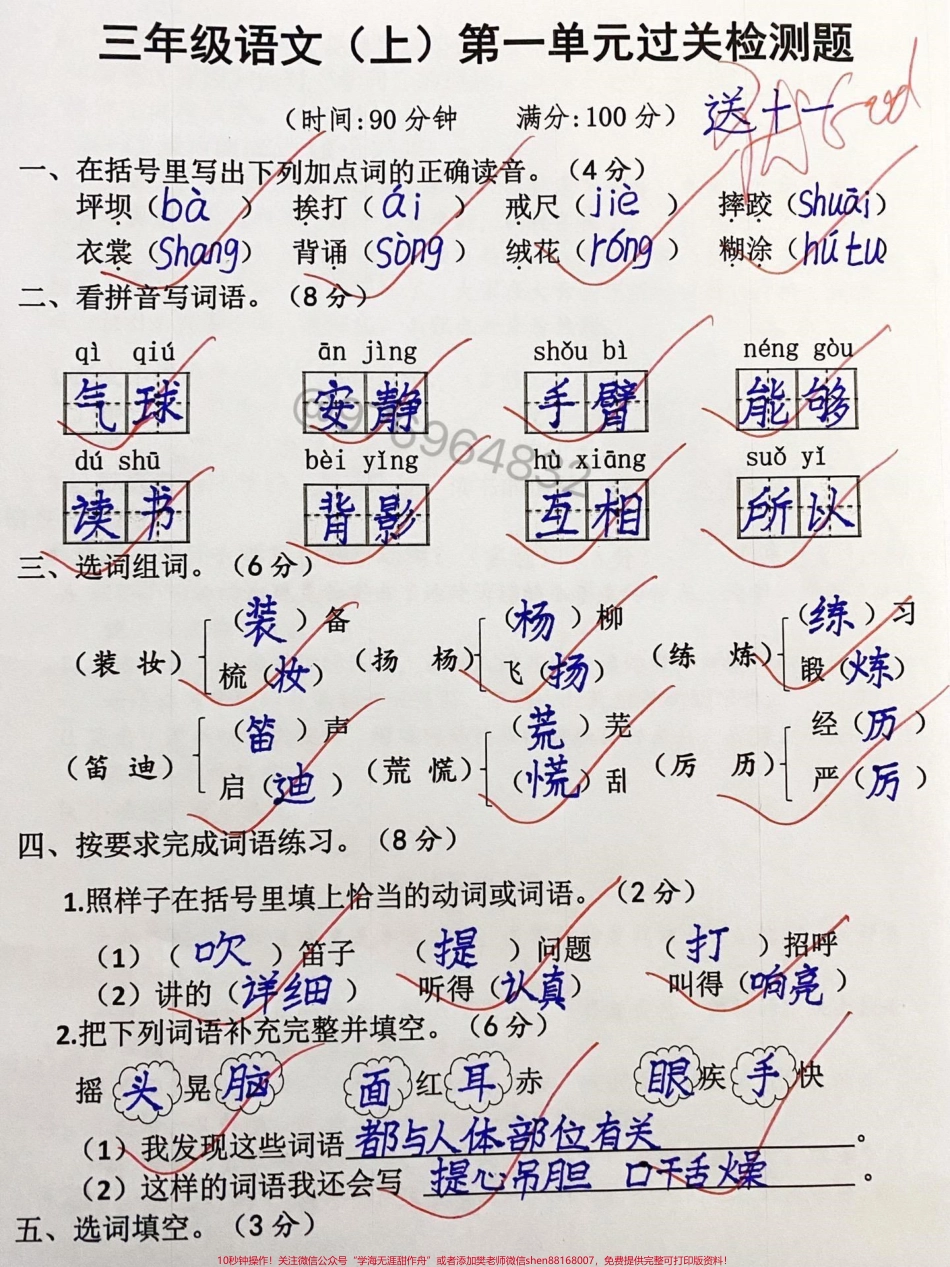 三年级语文（上）第一单元过关检测题
（时间:90分钟 满分:100分） 送十一
Good
一、在括号里写出下列加点词的正确读音。（4分）
坪坝（bà） 挨打（ái） 戒尺（jiè） 摔跤（shuāi）
衣裳（shang） 背诵（sòng） 绒花（róng） 糊涂（hútu）
二、看拼音写词语。（8分）
qì qiú ān jìng shǒu bì néng gòu
气球 安静 手臂 能够
dú shū bèi yǐng hù xiāng suǒ yǐ
读书 背影 互相 所以
三、选词组词。（6分）
（装）备 （杨）柳 （练）习
（装 妆） （扬 杨） （练 炼）
梳（妆） 飞（扬） 锻（炼）
（笛）声 （荒）芜 经（历）
（笛 迪） （荒 慌） （厉 历）
启（迪） （慌）乱 严（厉）
四、按要求完成词语练习。（8分）
1.照样子在括号里填上恰当的动词或词语。（2分）
（1）（吹）笛子 （提）问题 （打）招呼
（2）讲的（详细） 听得（认真） 叫得（响亮）
2.把下列词语补充完整并填空。（6分）
摇头晃脑 面红耳赤 眼疾手快
（1）我发现这些词语都与人体部位有关。
（2）这样的词语我还会写 提心吊胆 口干舌燥。
五、选词填空。（3分）
10秒钟操作！关注微信公众号“学海无涯甜作舟”或者添加樊老师微信shen88168007，免费提供完整可打印版资料！